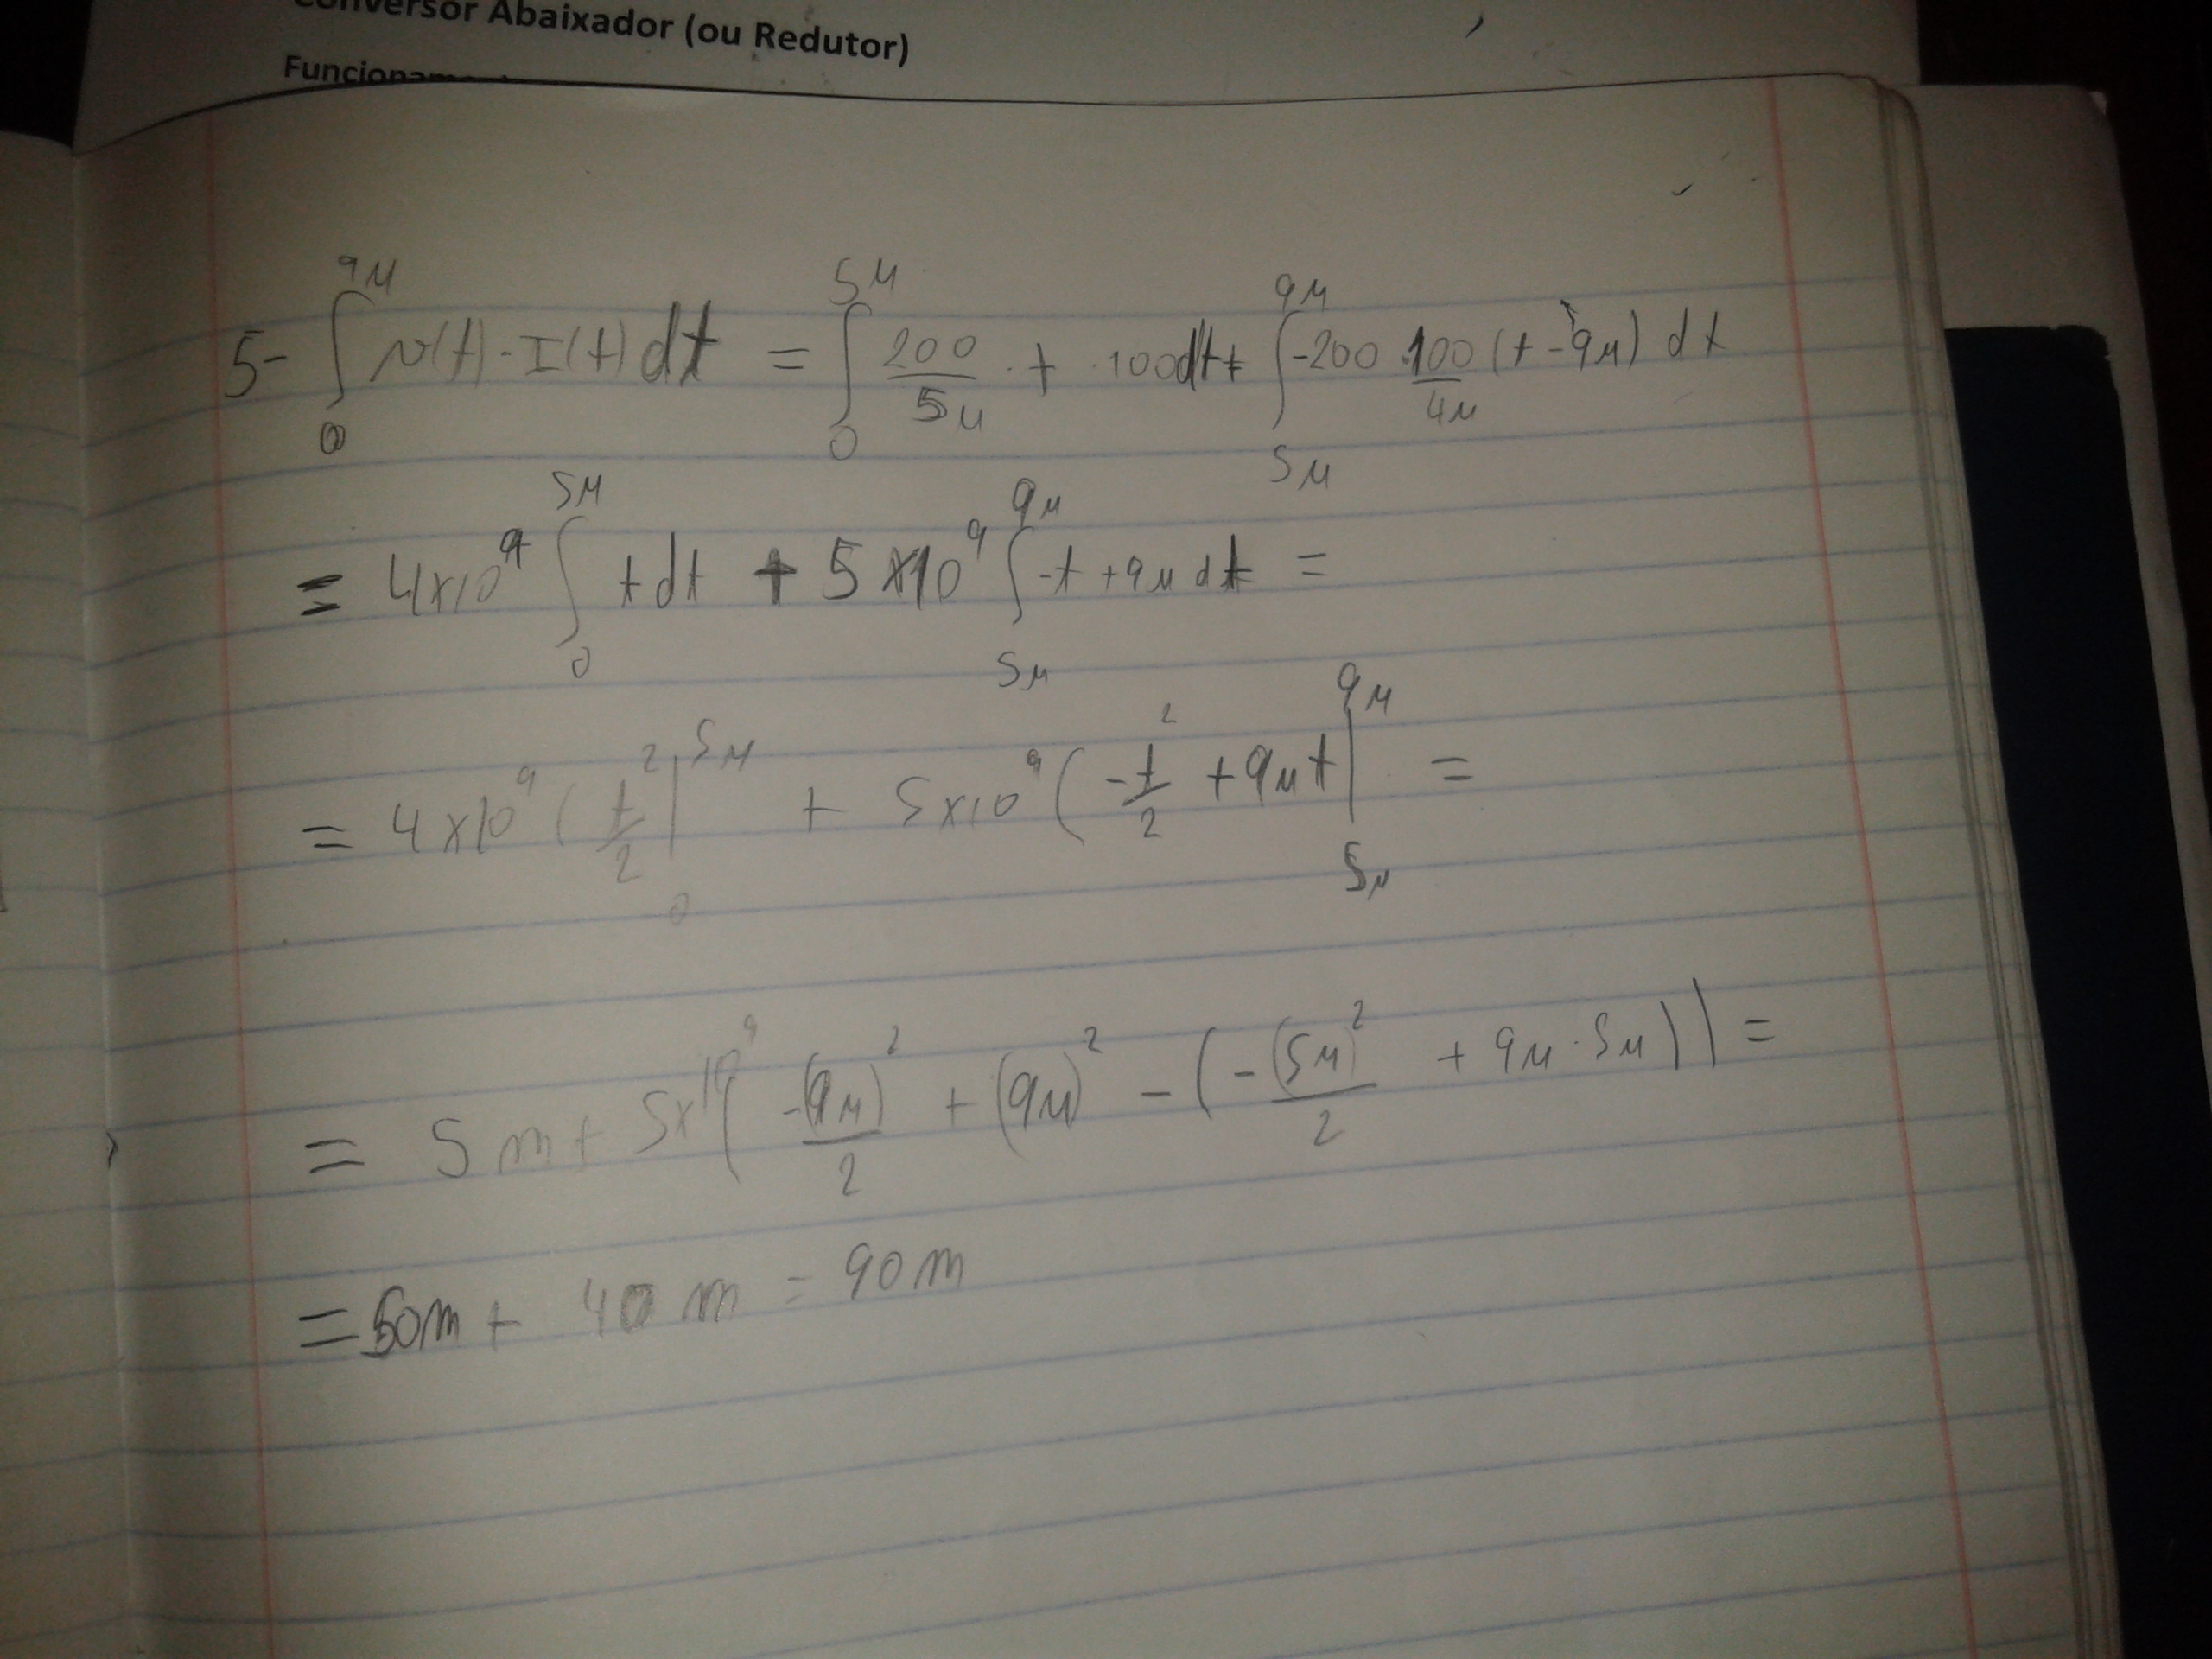 Conversor Abaixador (ou Redutor)
5- ∫₀^{9μ} v(t)·I(t)dt = ∫₀^{5μ} 200/5μ · t · 100dt + ∫_{5μ}^{9μ} -200·100/4μ (t-9μ) dt
= 4x10⁹ ∫₀^{5μ} t dt + 5x10⁹ ∫_{5μ}^{9μ} -t+9μ dt =
= 4x10⁹ (t²/2 |₀^{5μ} + 5x10⁹ (-t²/2 + 9μt |_{5μ}^{9μ} =
= 5m + 5x10⁹ (-(9μ)²/2 + (9μ)² - (-(5μ)²/2 + 9μ·5μ)) =
= 50m + 40m = 90m